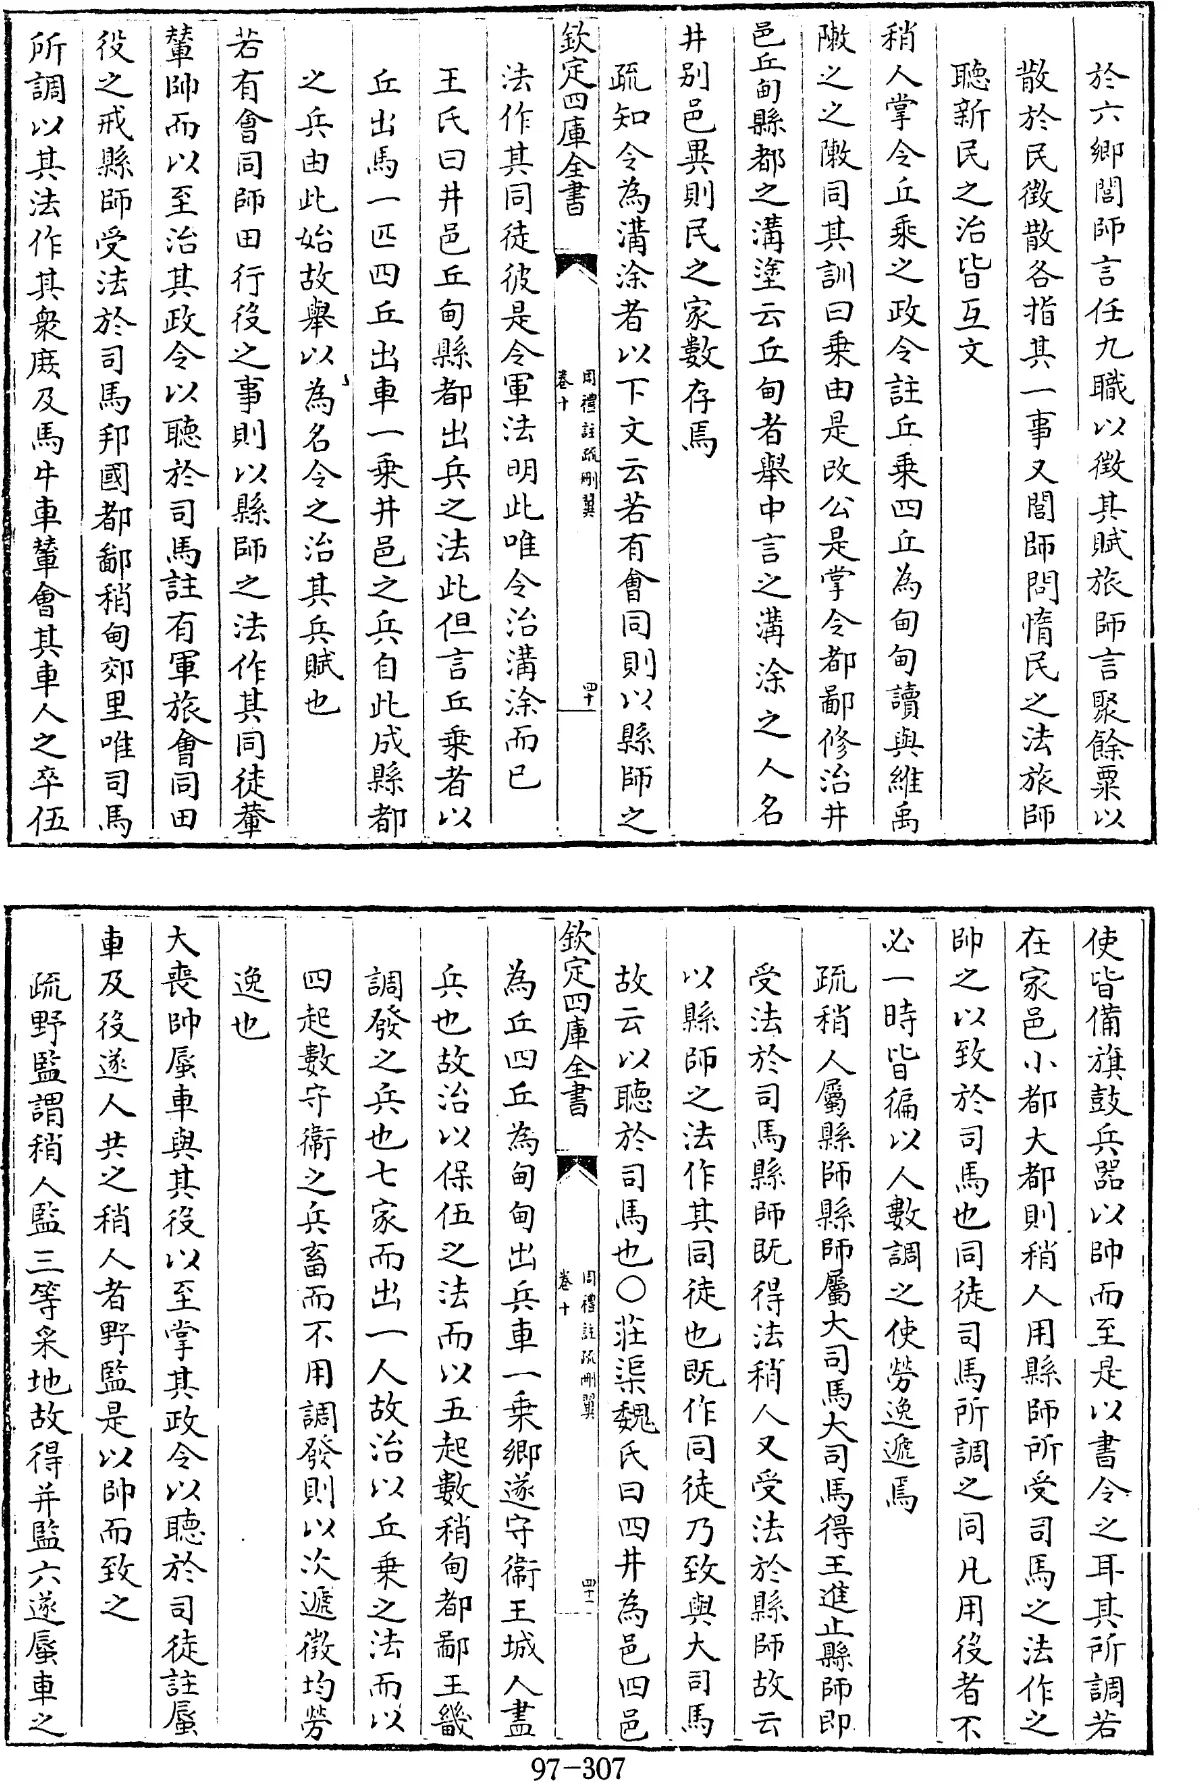 於六鄉閭師言任九職以徵其賦旅師言聚餘粟以
散於民徵散各指其一事又閭師問惰民之法旅師
聽新民之治皆互文
稍人掌令丘乘之政令註丘乘四丘為甸甸讀與維禹
敶之之敶同其訓曰乘由是改公是掌令都鄙修治井
邑丘甸縣都之溝塗云丘甸者舉中言之溝涂之人名
井别邑異則民之家數存焉
疏知令為溝涂者以下文云若有會同則以縣師之
欽定四庫全書
周禮註疏刪翼
卷十
四十
法作其同徒彼是令軍法明此唯令治溝涂而已
王氏曰井邑丘甸縣都出兵之法此但言丘乗者以
丘出馬一匹四丘出車一乗井邑之兵自此成縣都
之兵由此始故舉以為名令之治其兵賦也
若有會同師田行役之事則以縣師之法作其同徒輂
輦帥而以至治其政令以聽於司馬註有軍旅會同田
役之戒縣師受法於司馬邦國都鄙稍甸郊里唯司馬
所調以其法作其衆庶及馬牛車輦會其車人之卒伍
使皆備旗鼓兵器以帥而至是以書令之耳其所調若
在家邑小都大都則稍人用縣師所受司馬之法作之
帥之以致於司馬也同徒司馬所調之同凡用役者不
必一時皆徧以人數調之使勞逸遞焉
疏稍人屬縣師縣師屬大司馬大司馬得王進止縣師即
受法於司馬縣師既得法稍人又受法於縣師故云
以縣師之法作其同徒也既作同徒乃致與大司馬
故云以聽於司馬也○莊渠魏氏曰四井為邑四邑
欽定四庫全書
周禮註疏刪翼
卷十
四十一
為丘四丘為甸甸出兵車一乗鄉遂守衞王城人盡
兵也故治以保伍之法而以五起數稍甸都鄙王畿
調發之兵也七家而出一人故治以丘乗之法而以
四起數守衞之兵畜而不用調發則以次遞徵均勞
逸也
大喪帥蜃車與其役以至掌其政令以聽於司徒註蜃
車及役遂人共之稍人者野監是以帥而致之
疏野監謂稍人監三等采地故得并監六遂蜃車之
97-307